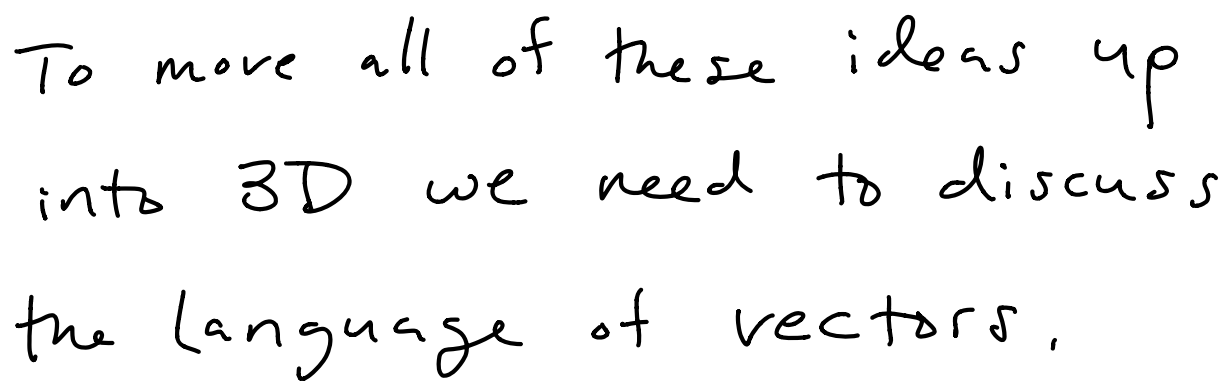 To move all of these ideas up
into 3D we need to discuss
the language of vectors.